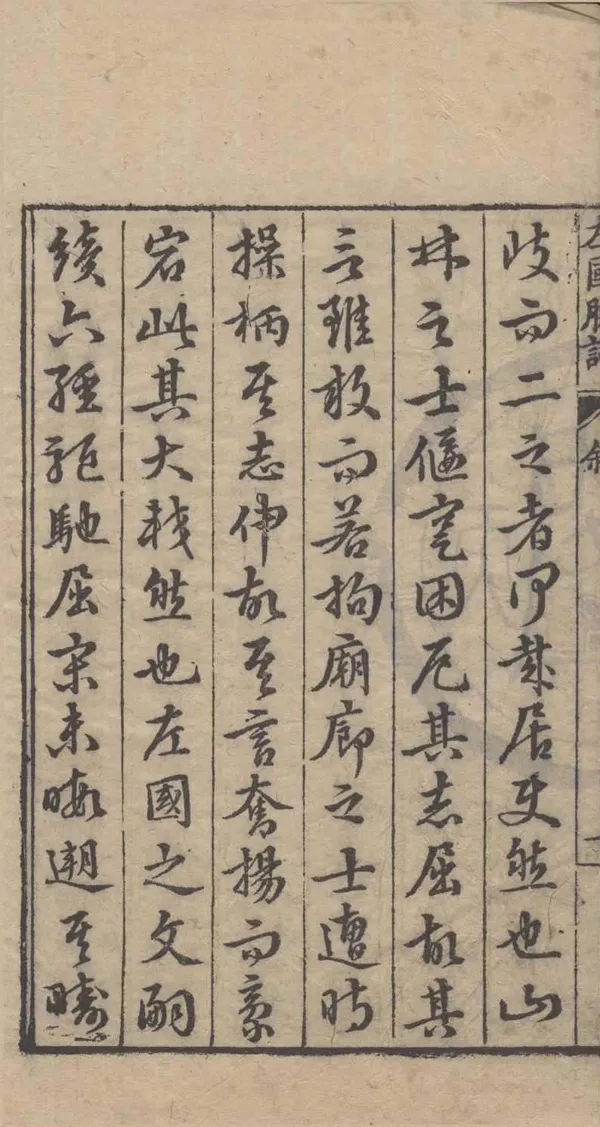 左國腴詞 叙 一
歧而二之者何哉居使然也山
林之士偃蹇困厄其志屈故其
言雖放而若拘廟廊之士遭時
操柄其志伸故其言奮揚而豪
宕此其大較然也左國之文嗣
續六經驅馳屈宋未暇遡其疇